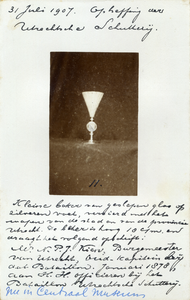 31 Juli 1907. Opheffing der
Utrechtsche Schutterij.
11.
Kleine beker van geslepen glas op
zilveren voet, versierd met het
wapen van de stad en van de provincie
Utrecht. De beker is hoog 10 c.m. en
draagt het volgend opschrift:
Mr. N.P.J. Kien, Burgemeester
van Utrecht, Oud. Kapitein bij
het Bataillon. Januari 1878
aan de H.H. Officieren bij het
Bataillon Utrechtsche Schutterij.
Nu in Centraal Museum